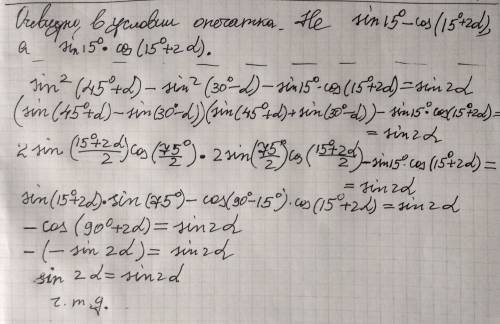 Очевидно, в условии опечатка. Не sin15° - cos(15°+2α),
а sin15° · cos(15°+2α).
sin²(45°+α) - sin²(30°-α) - sin15° · cos(15°+2α) = sin2α
(sin(45°+α) - sin(30°-α))(sin(45°+α) + sin(30°-α)) - sin15° · cos(15°+2α) =
= sin2α
2 sin((15°+2α)/2) cos(75°/2) · 2 sin(75°/2) cos((15°+2α)/2) - sin15° · cos(15°+2α) =
= sin2α
sin(15°+2α) · sin(75°) - cos(90°-15°) · cos(15°+2α) = sin2α
- cos(90°+2α) = sin2α
- (- sin2α) = sin2α
sin2α = sin2α
ч.т.д.